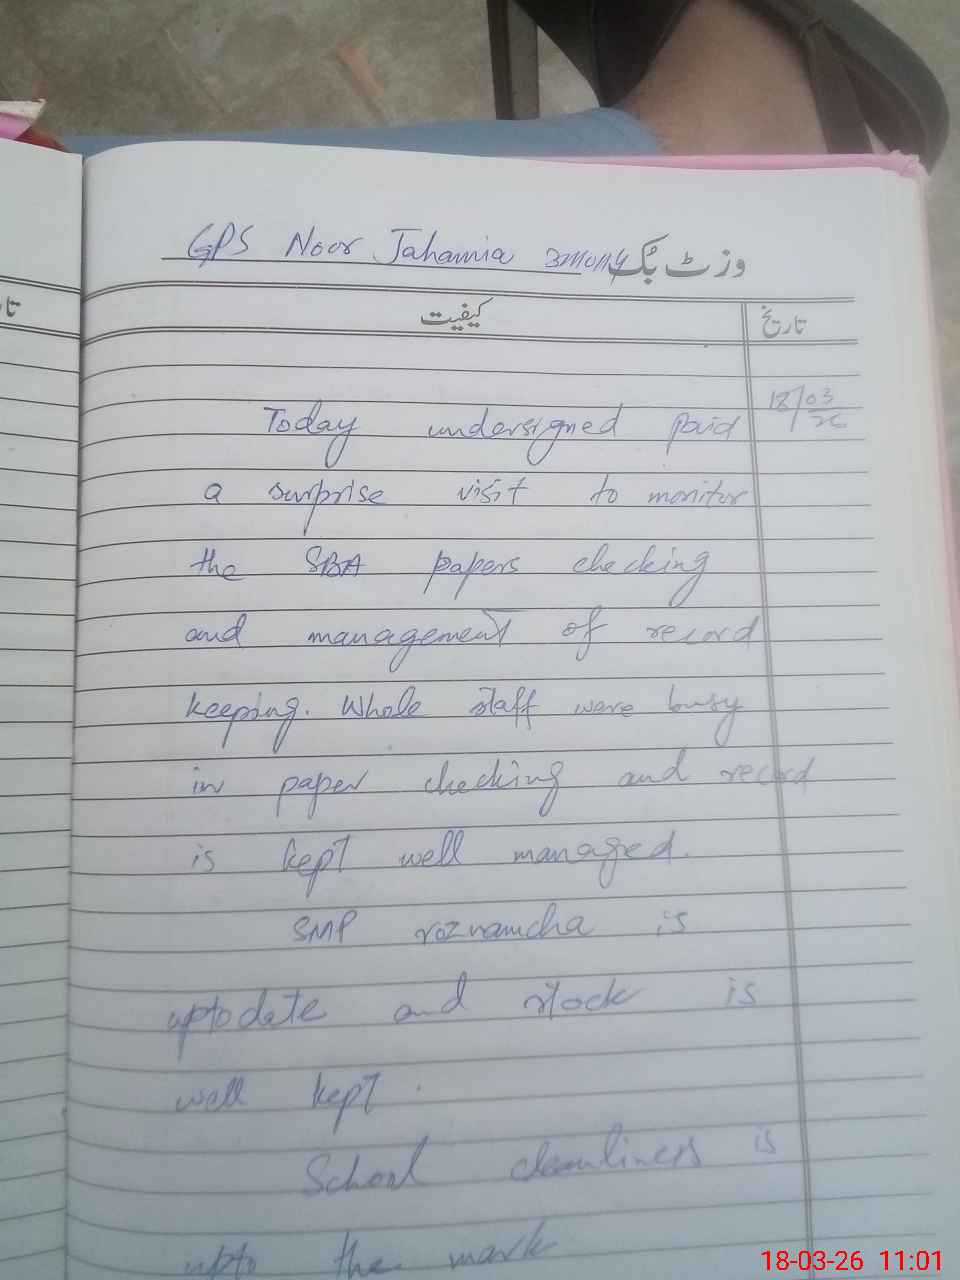 GPS Noor Jahamia
وزٹ بُک
کیفیت
تاریخ
تا
18/03/26
Today undersigned paid
a surprise visit to monitor
the SBA papers checking
and management of record
keeping. Whole staff were busy
in paper checking and record
is kept well managed.
SMP roznamcha is
uptodate and stock is
well kept.
School cleanliness is
upto the mark
18-03-26 11:01